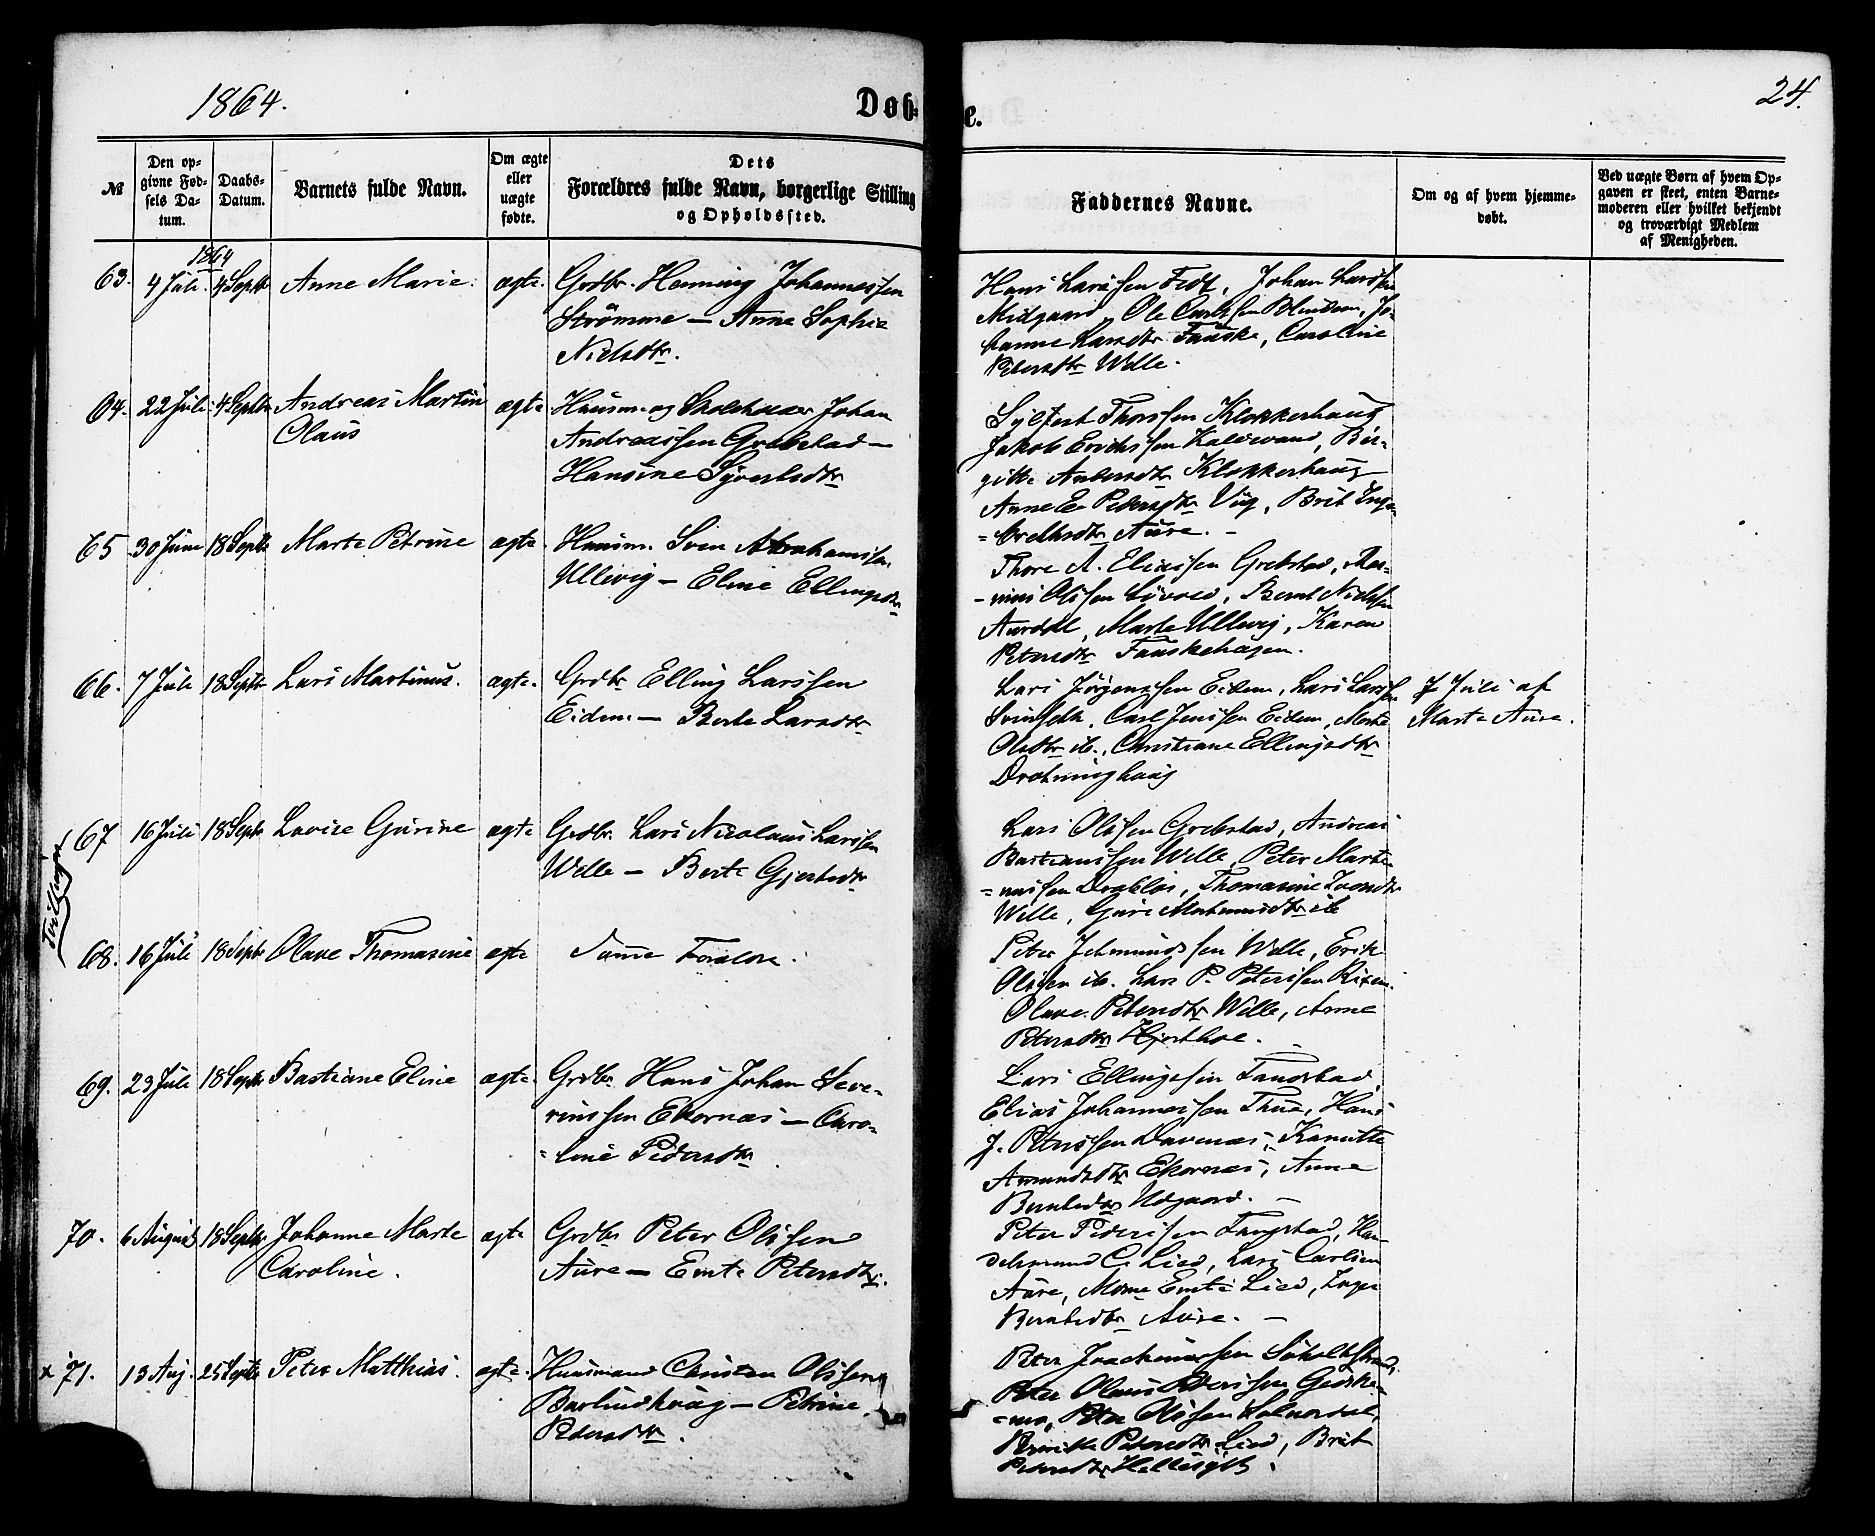 1864.
Døb-
e.
24.
№
Den op-
givne Fød-
sels Da-
tum.
Daabs-
Datum.
Barnets fulde Navn.
Om ægte
eller
uægte
fødte.
Dets
Forældres fulde Navn, borgerlige Stilling
og Opholdssted.
Faddernes Navne.
Om og af hvem hjemme-
døbt.
Ved uægte Børn af hvem Op-
gaven er skeet, enten Barne-
moderen eller hvilket bekjendt
og troværdigt Medlem
af Menigheden.
1864
63. 4 Juli 4 Septbr Anne Marie. ægte. Grdbr. Henning Johannessen
Strømme — Anne Sophie
Nielsdtr.
Hans Larssen Fedt, Johan Larssen
Midgaard, Ole Carlssen Blindem, Jo-
hanne Larsdtr Fauske, Caroline
Petersdtr Welle.
64. 22 Juli 4 Septbr Andreas Martin ægte Huusm. og Skoleholder Johan
Olaus Andreassen Grebstad —
Hansine Syvertsdtr
Sylfest Thorssen Klokkerhaug
Jakob Erichssen Kaldvand, Bir-
gitte Andersdtr Klokkerhaug
Anne E. Pedersdtr Vig, Brit Inge-
=bregtsdtr Aure. -
65 30 Juni 18 Septbr Marte Petrine ægte Huusm. Sven Abrahamssen
Ullevig — Eline Ellingsdtr
Thore A. Eliassen Grebstad, Ras-
-mus Olssen Løvold, Bernt Nielssen
Aurdal, Marte Ullevig, Karen
Petersdtr Fauskehagen.
66. 7 Juli 18 Septbr Lars Martinus. ægte. Grdbr Elling Larssen
Eidem — Berte Larsdtr
Lars Jørgenssen Eidem, Lars Larssen
Carl Jenssen Eidem, Marte
Olsdtr ib., Christiane Ellingsdtr
Drotninghaug
7 Juli af
Marte Aure.
Tvillinger
67 16 Juli 18 Septbr Lovise Gurine ægte Grdbr. Lars Nicolaus Larssen
Welle — Berte Gjertsdtr
Lars Olssen Grebstad, Andreas
Bastianssen Welle, Peter Marti-
=nussen Drabløs, Thomasine Ivarsdtr
Welle, Guri ib
68. 16 Juli 18 Septbr Olave Thomasine ægte Samme Forældre.
Peter Jetmundssen Welle, Erik
Olssen ib. Lars P. Peterssen
Olave Petersdtr Welle, Anne
Petersdtr Hjorthol.
69. 23 Juli 18 Septbr Bastiane Eline ægte. Grdbr. Hans Johan Seve-
rinssen Ekornæs — Caro-
=line Pedersdtr.
Lars Ellingssen Tandstad
Elias Johannessen Thue, Hans
J. Peterssen Davenæs, Kanutte
Amundsdtr Ekornæs, Anne
Berntsdtr Udgaard. —
70. 6 August 18 Septbr Johanne Marte ægte Grdbr Peter Olssen
Caroline. Aure — Emte Petersdtr.
Peter Pederssen Tangstad, Han-
delsmand C. Lied, Lars Carlsen
Aure, Mme Emte Lied, Inger
Berntsdtr Aure. —
x 71. 13 Aug. 25 Septbr Peter Matthias. ægte. Huusmand Christen Olssen
Barlindhaug — Petrine
Pedersdtr.
Peter Joachimssen Søholtstrand,
Peter Olaus Pederssen Gedske-
=mo, Peter Olssen Solnørdal,
Petersdtr Lied, Brit
Pedersdtr Hellesylt.